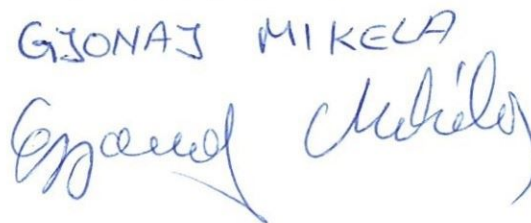 GJONAJ MIKELA
Gjonaj Mikela